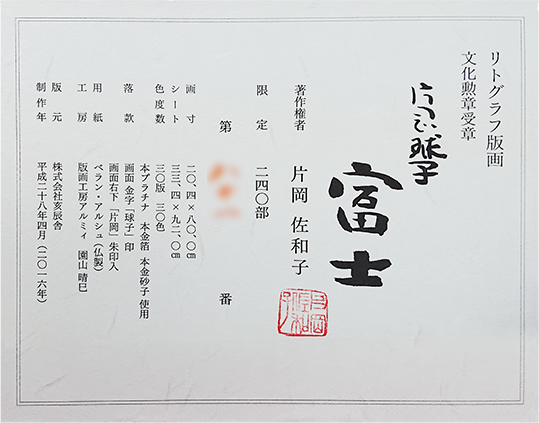 リトグラフ版画
文化勲章受章
片岡球子
富士
著作権者 片岡 佐和子
限定 二四〇部
第 番
画寸 二〇、四×八〇、〇㎝
シート 三三、四×九二、〇㎝
色度数 三〇版 三〇色
本プラチナ 本金箔 本金砂子 使用
落款 画面金字「球子」印
画面右下「片岡」朱印入
用紙 ベラン・アルシュ(仏製)
工房 版画工房アルミィ 園山晴巳
版元 株式会社亥辰舎
制作年 平成二十八年四月(二〇一六年)